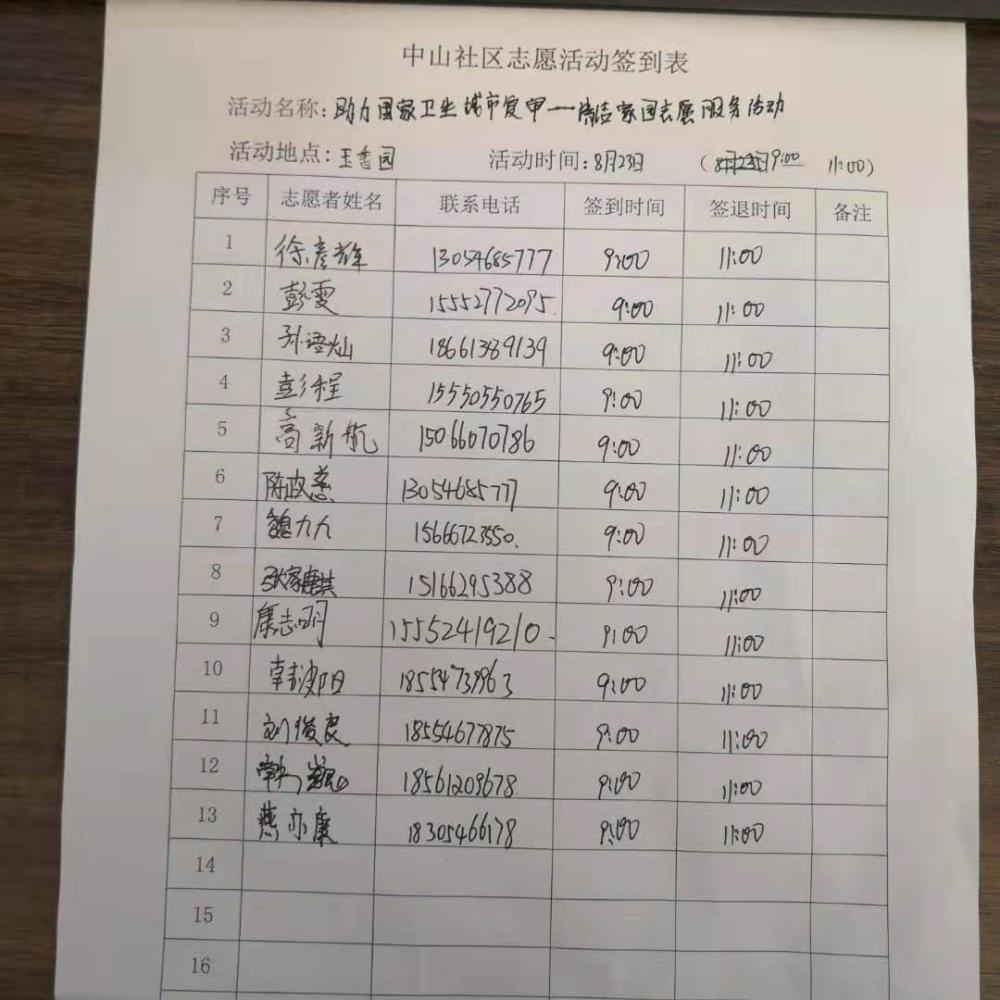 中山社区志愿活动签到表
活动名称:助力国家卫生城市复审——清洁家园志愿服务活动
活动地点:玉杏园 活动时间:8月23日 (9:00 11:00)
序号 志愿者姓名 联系电话 签到时间 签退时间 备注
1 徐彦雄 13054685777 9:00 11:00
2 彭雯 15552772095 9:00 11:00
3 孙语灿 18661389139 9:00 11:00
4 彭程 15550550765 9:00 11:00
5 高新航 15066070786 9:00 11:00
6 陈政慈 13054685777 9:00 11:00
7 魏九九 15666723550. 9:00 11:00
8 张家麒 15166295388 9:00 11:00
9 康志明 15552419210 9:00 11:00
10 18554739963 9:00 11:00
11 刘俊良 18554677875 9:00 11:00
12 18561209678 9:00 11:00
13 燕亦康 18305466178 9:00 11:00
14
15
16